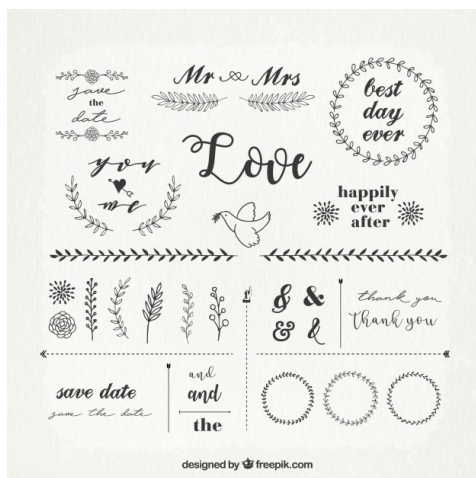 save
the
date
Mr Mrs
best
day
ever
you
me
Love
happily
ever
after
& &
& &
thank you
thank you
save date
save the date
and
and
the
designed by freepik.com